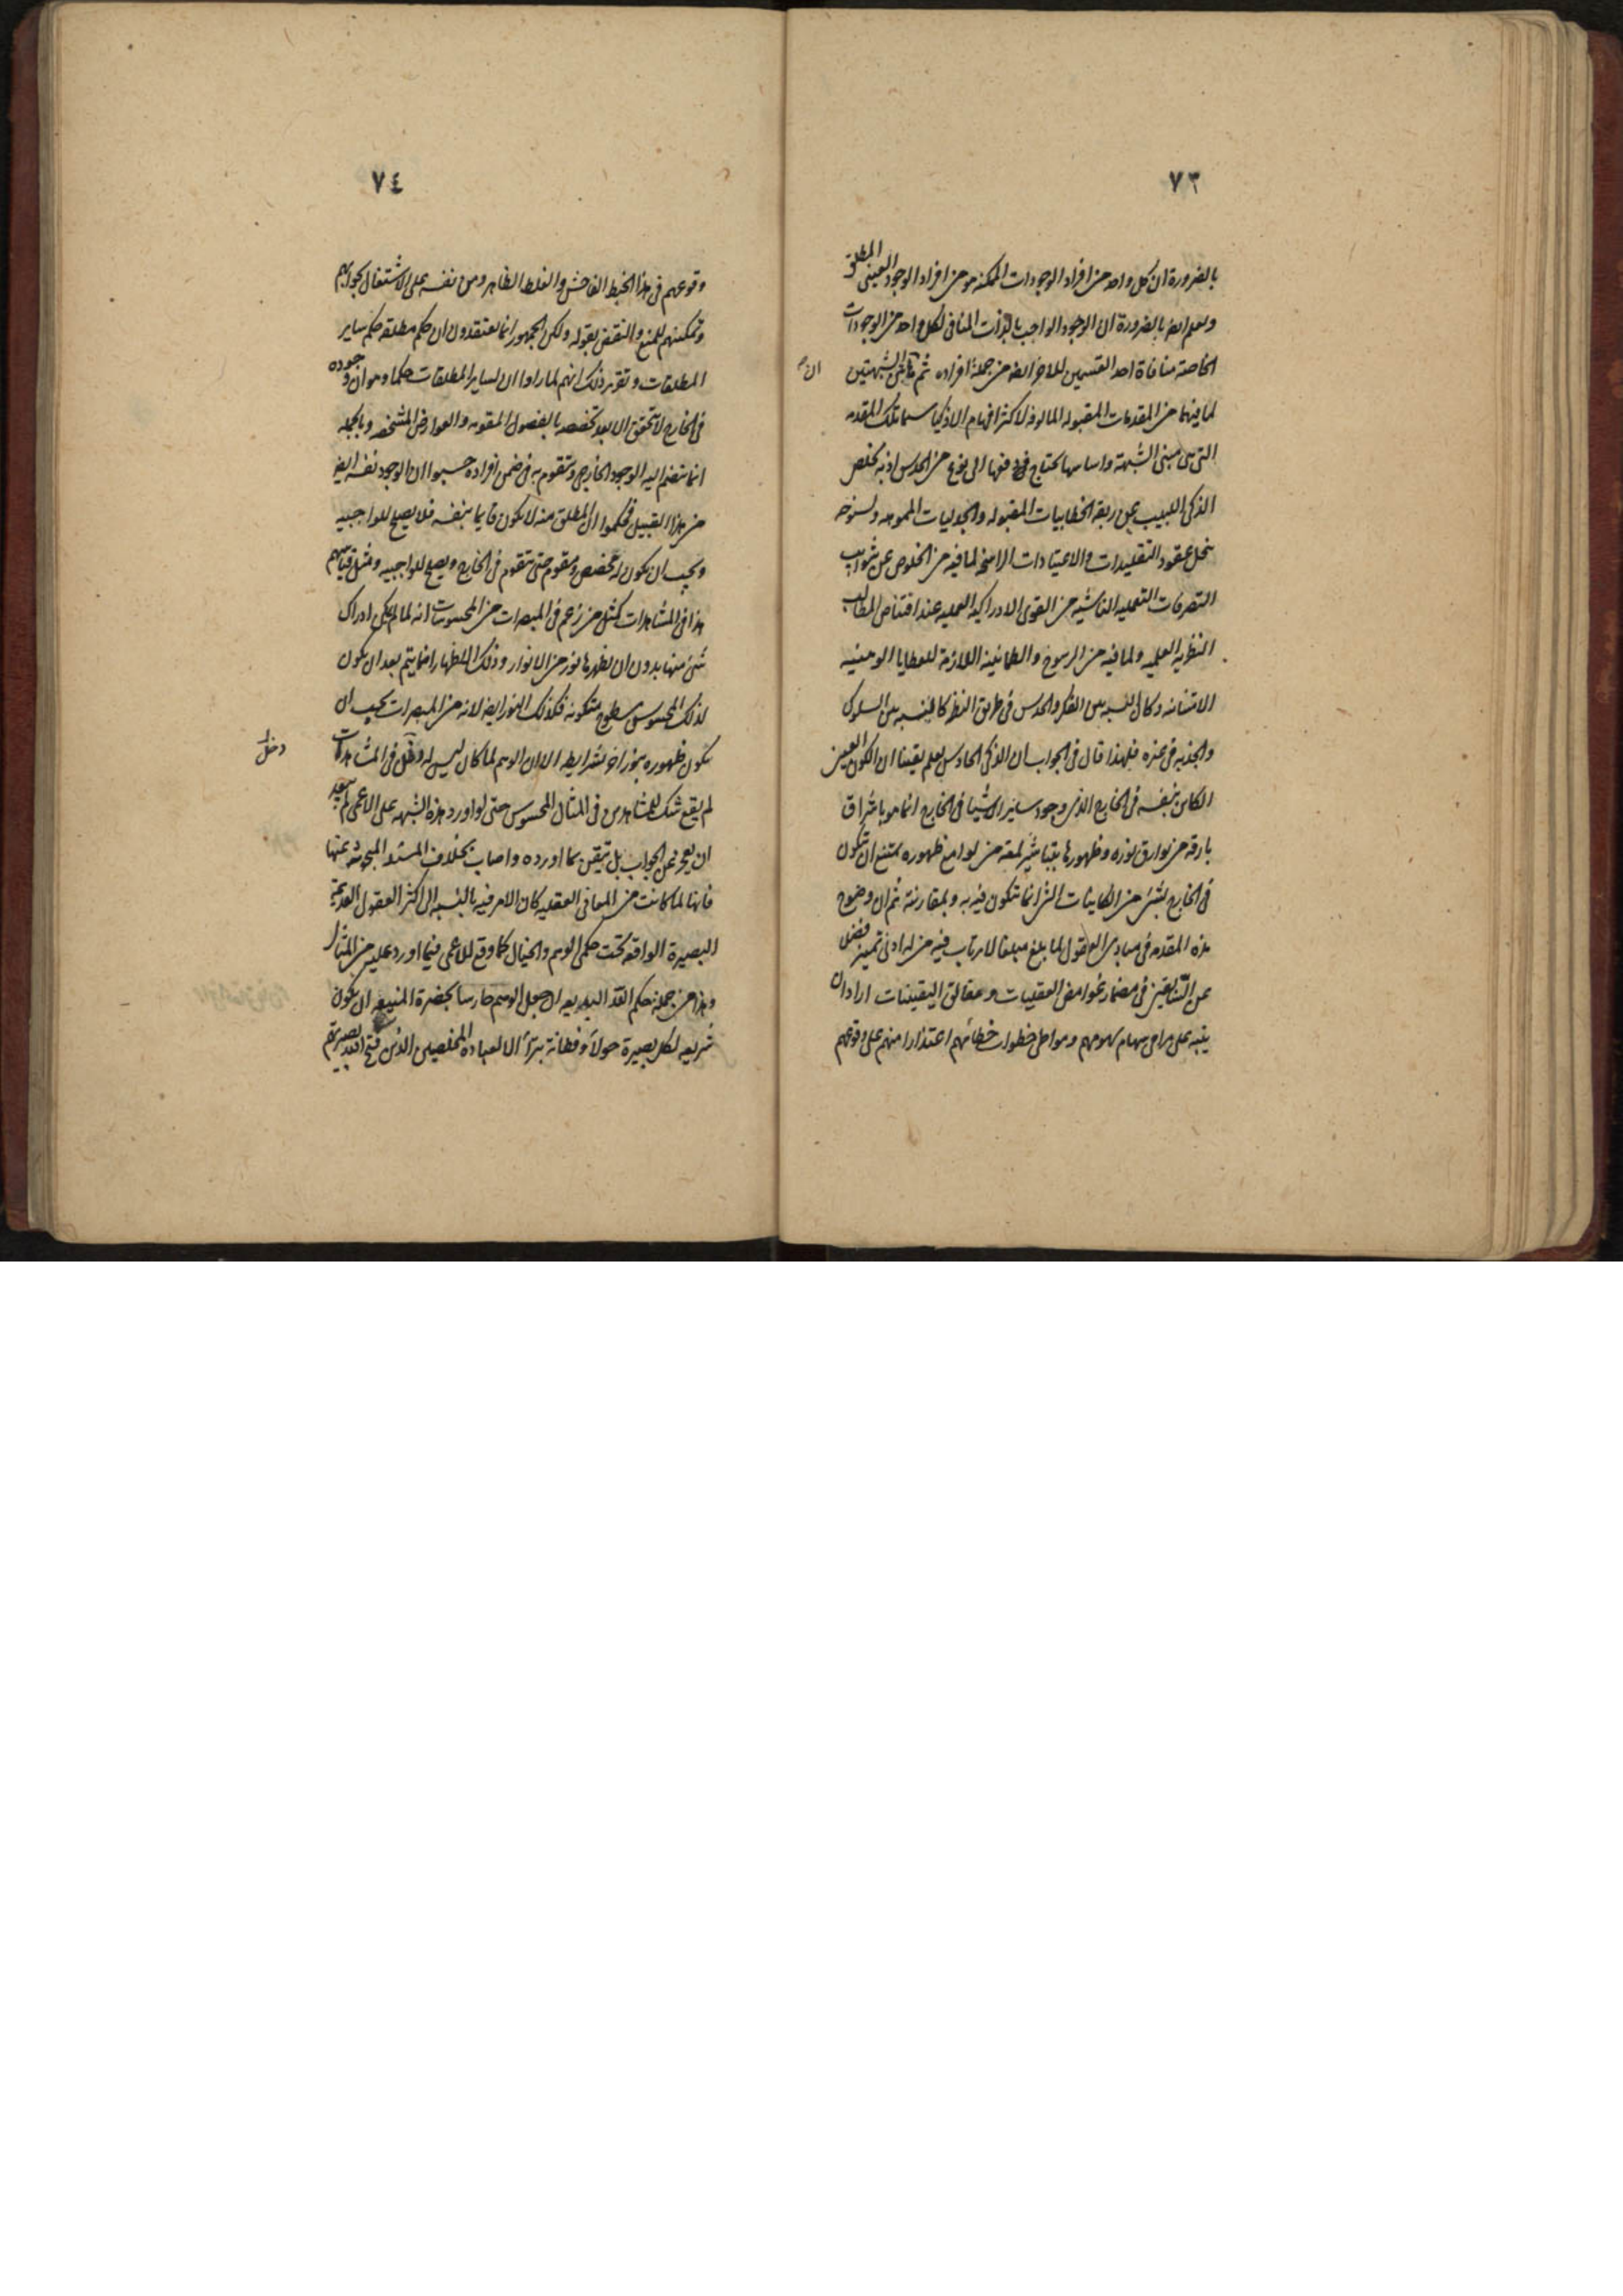 ٧٣
بالضرورة ان كل واحد من افراد الوجودات الممكنة هو من افراد الوجود العينى المطلق
ويعلم ايضا بالضرورة ان الوجود الواجب بالذات المنافى لكل واحد من الوجودات
الخاصة منافاة احد القسمين للاخر ايضا من جملة افراده ثم ان الشبهتين
لما فيهما من المقدمات المقبولة المالوفة لاكثر افهام الاذكيا سيما تلك المقدمة
التى هى مبنى الشبهة واساسها يحتاج فى دفعها الى نوع من الحدس اذ به يخلص
الذكى اللبيب عن ربقة الخطابيات المقبولة والجدليات المموهة ولسنوحه
ينحل عقود التقليدات والاعتيادات الراسخة لما فيه من الخلوص عن شوايب
التصرفات التعملية الناشية من القوى الادراكية العملية عند اقتناص المطالب
النظرية العلمية ولما فيه من الرسوخ والطمانينة اللازمة للعطايا الوهبية
الامتنانية وكان النسبة بين الفكر والحدس فى طريق النظر كالنسبة بين السلوك
والجذبة فى غيره فلهذا قال فى الجواب ان الذكى الحادس يعلم يقينا ان الكون العينى
الكاين بنفسه فى الخارج الذى وجود ساير الاشيا فى الخارج انما هو باشراق
بارقة من بوارق نوره وظهورها بتباشير لمعة من لوامع ظهوره يمتنع ان يكون
فى الخارج بشئ من الكاينات التى انما تتكون فيه به وبمقارنته ثم ان وضوح
هذه المقدمة فى مبادى العقول لما بلغ مبلغا لا يرتاب فيه من له ادنى تميز فضلا
عن السابقين فى مضمار غوامض العقليات وحقايق اليقينيات اراد ان
ينبه على مرامى سهام سهوهم ومواطى خطوات خطائهم اعتذارا منهم على وقوعهم
ان
٧٤
وقوعهم فى هذا الخبط الفاحش والغلط الظاهر ومن نفسه على الاشتغال بجوابهم
وتمكينهم للمنع والنقض بقوله ولكن الجمهور انما يعتقدون ان حكم مطلقه حكم ساير
المطلقات وتقرير ذلك انهم لما راوا ان لساير المطلقات حكما وهو ان وجوده
فى الخارج لا يتحقق الا بعد تخصصه بالفصول المقومة والعوارض المشخصة وبالجملة
انما ينضم اليه الوجود الخارجى ويتقوم به فى ضمن افراده حسبوا ان الوجود نفسه ايضا
من هذا القبيل فحكموا ان المطلق منه لا يكون قايما بنفسه فلا يصلح للواجبية
ويجب ان يكون له مخصص ومقوم حتى يتقوم فى الخارج ويصلح للواجبية ومثل قياسهم
هذا فى المشاهدات كمثل من زعم فى المبصرات من المحسوسات انه لما لم يمكن ادراك
شئ منها بدون ان يظهرها نور من الانوار وذلك الاظهار انما يتم بعد ان يكون
لذلك المحسوس سطوح متلونة فكذلك النور ايضا لانه من المبصرات يجب ان
يكون ظهوره بنور اخر بشرايطه الا ان الوهم لما كان ليس له دخل فى المشاهدات
لم يقع شك للمشاهدين فى المثال المحسوس حتى لو اورد هذه الشبهة على الاعمى لم يبعد
ان يعجز عن الجواب بل تيقن بما اورده واصاب بخلاف المسئلة المبحوث عنها
فانها لما كانت من المعانى العقلية كان الامر فيه بالنسبة الى اكثر العقول العديمة
البصيرة الواقفة تحت حكمى الوهم والخيال كما وقع للاعمى فيما اورد عليه من المثال
وهذا من جملة حكم الله البديعة ان جعل الوهم حارسا لحضرة المنيعة ان يكون
شريعة لكل بصيرة حولاء وفطانة بتراء الا لعباده المخلصين الذين فتح الله بصيرتهم
دخل